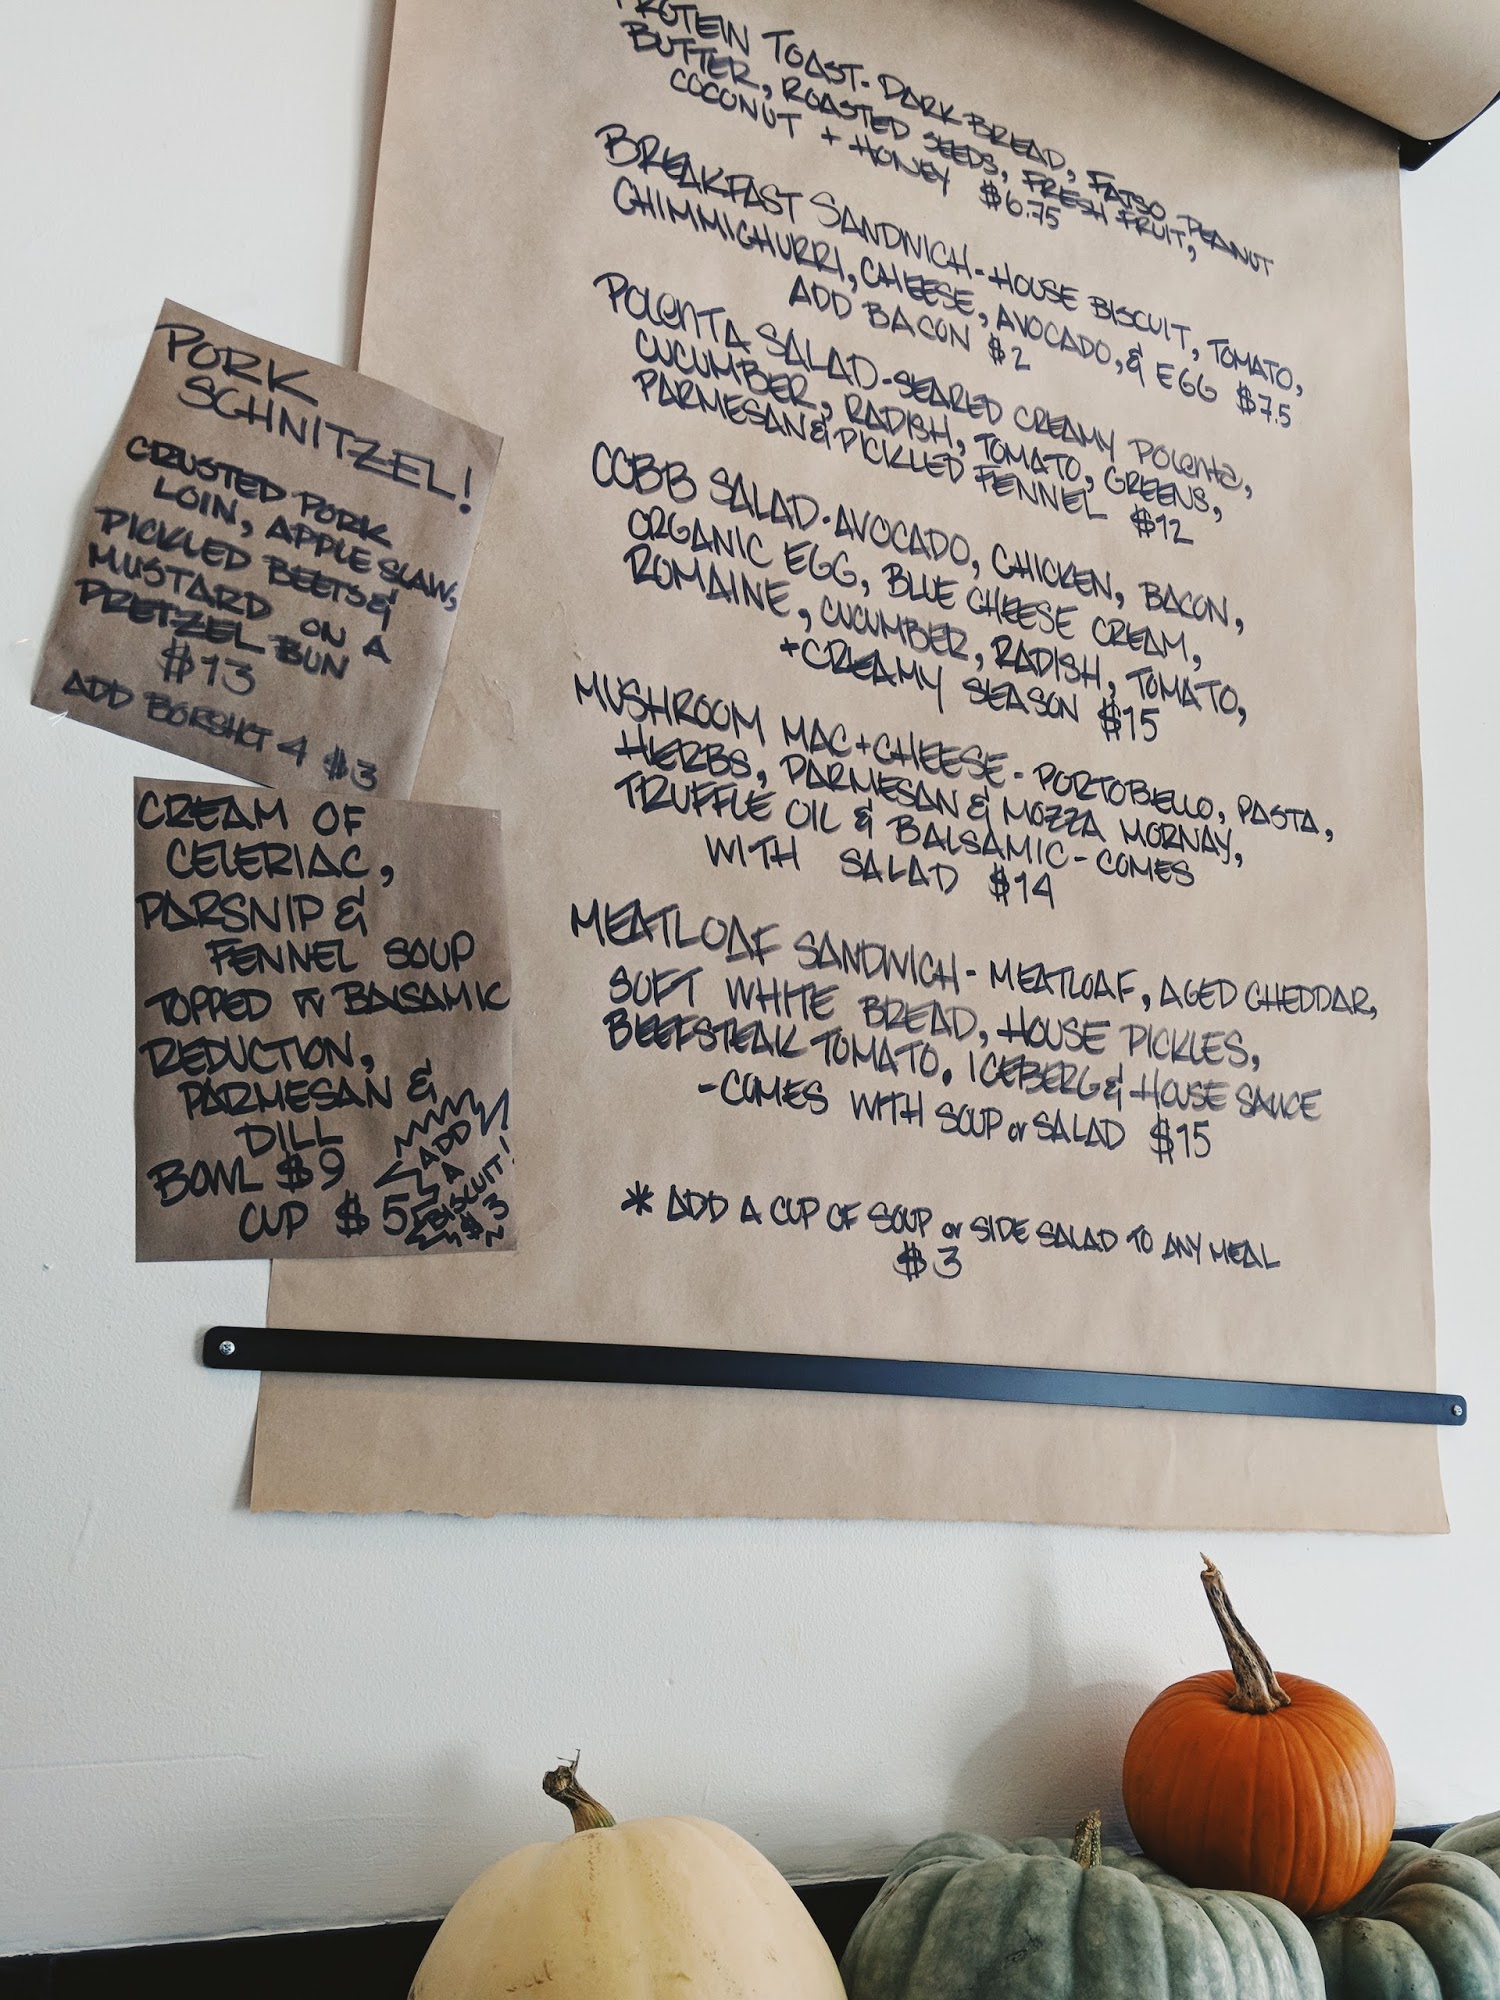 PROTEIN TOAST- DARK BREAD, FATSO PEANUT
BUTTER, ROASTED SEEDS, FRESH FRUIT,
COCONUT + HONEY $6.75
BREAKFAST SANDWICH-HOUSE BISCUIT, TOMATO,
CHIMMICHURRI, CHEESE, AVOCADO, & EGG $7.5
ADD BACON $2
POLENTA SALAD-SEARED CREAMY POLENTA,
CUCUMBER, RADISH, TOMATO, GREENS,
PARMESAN & PICKLED FENNEL $12
COBB SALAD-AVOCADO, CHICKEN, BACON,
ORGANIC EGG, BLUE CHEESE CREAM,
ROMAINE, CUCUMBER, RADISH, TOMATO,
+CREAMY SEASON $15
MUSHROOM MAC+CHEESE- PORTOBELLO, PASTA,
HERBS, PARMESAN & MOZZA MORNAY,
TRUFFLE OIL & BALSAMIC-COMES
WITH SALAD $14
MEATLOAF SANDWICH- MEATLOAF, AGED CHEDDAR,
SOFT WHITE BREAD, HOUSE PICKLES,
BEEFSTEAK TOMATO, ICEBERG & HOUSE SAUCE
-COMES WITH SOUP or SALAD $15
* ADD A CUP OF SOUP or SIDE SALAD TO ANY MEAL
$3
PORK
SCHNITZEL!
CRUSTED PORK
LOIN, APPLE SLAW,
PICKLED BEETS &
MUSTARD ON A
PRETZEL BUN
$13
ADD BORSHCT 4 $3
CREAM OF
CELERIAC,
PARSNIP &
FENNEL SOUP
TOPPED W BALSAMIC
REDUCTION,
PARMESAN &
DILL
BOWL $9
CUP $5
ADD
A
BISCUIT!
$3